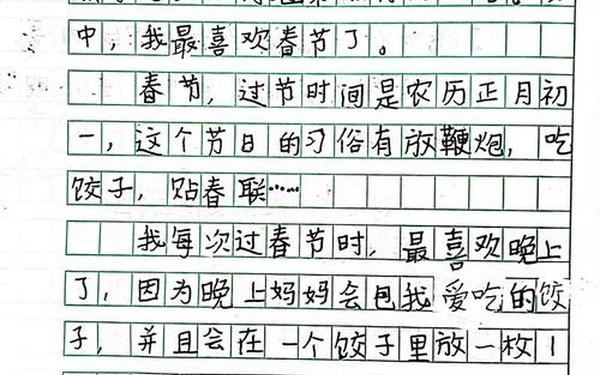 中，我最喜欢春节了。
春节，过节时间是农历正月初
一，这个节日的习俗有放鞭炮，吃
饺子，贴春联……
我每次过春节时，最喜欢晚上
了，因为晚上妈妈会包我爱吃的饺
子，并且会在一个饺子里放一枚1